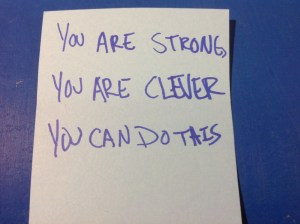 YOU ARE STRONG,
YOU ARE CLEVER
YOU CAN DO THIS